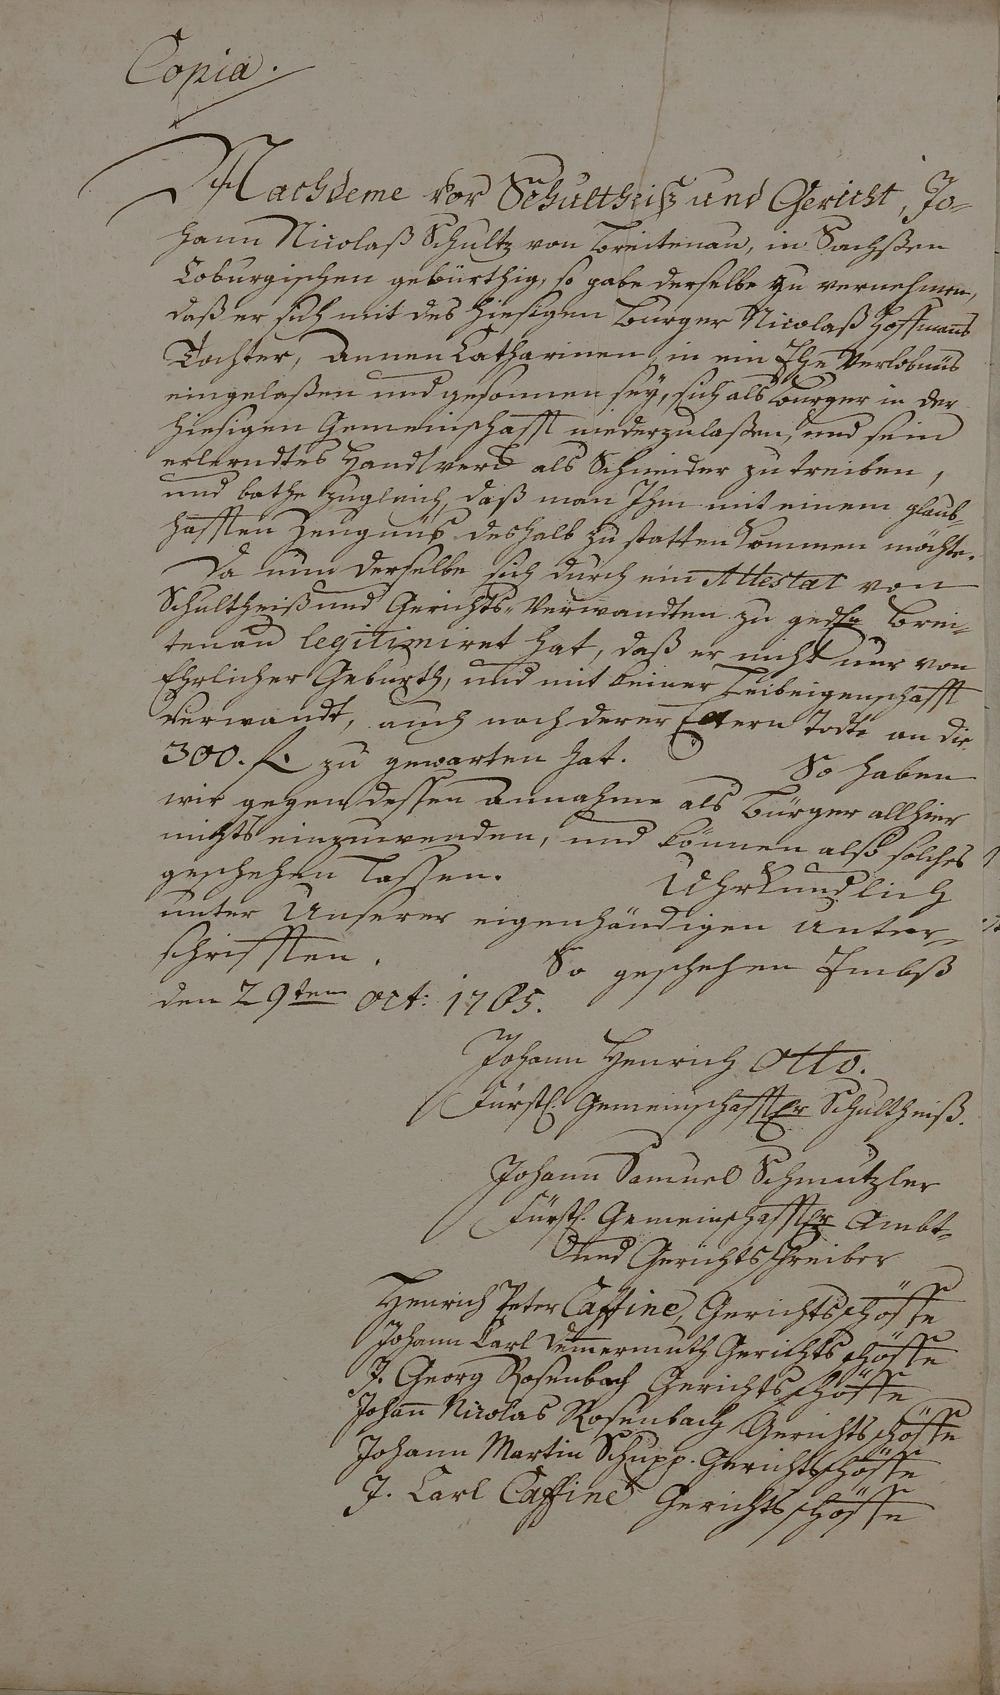 Copia.
Nachdeme vor Schultheiß und Gericht, Jo-
hann Nicolaß Schultz von Breitenau, in Sachßen
Coburgischen gebürthig, so gabe derselbe zu vernehmen,
daß er sich mit des hiesigen Burger Nicolaß Hoffmanns
Tochter, Annen Catharinen in ein Ehe Verlobnüs
eingelaßen und gesonnen sey, sich als Burger in der
hiesigen Gemeinschafft niederzulaßen, und sein
erlerndtes Handtwerck als Schneider zu treiben,
und bathe zugleich, daß man Ihm mit einem glaub-
hafften Zeugnüß deshalb zu statten kommen möchte.
Da nun derselbe sich durch ein Attestat von
Schultheiß und Gerichts-Verwandten zu gedte Brei-
tenau legitimiret hat, daß er nicht nur von
Ehrlicher Geburth, und mit keiner Leibeigenschafft
verwandt, auch nach derer Eltern Todte an die
300. f. zu gewarten hat. So haben
wir gegen dessen Annahme als Bürger allhier
nichts einzuwenden, und können alß solches
geschehen lassen. Uhrkundlich
unter Unserer eigenhändigen Unter-
schrifften. So geschehen Imbß
den 29ten Oct: 1765.
Johann Henrich Otto.
Fürstl. Gemeinschafftler Schultheiß.
Johann Samuel Schmutzler
Fürstl. Gemeinschafftler Ambt-
und Gerichtschreiber
Henrich Peter Caffine, Gerichtsschöffe
Johann Carl Demermuth Gerichtsschöffe
J. Georg Rosenbach Gerichtsschöffe
Johann Nicolas Rosenbach Gerichtsschöffe
Johann Martin Schupp. Gerichtsschöffe
J. Carl Caffine Gerichtsschöffe